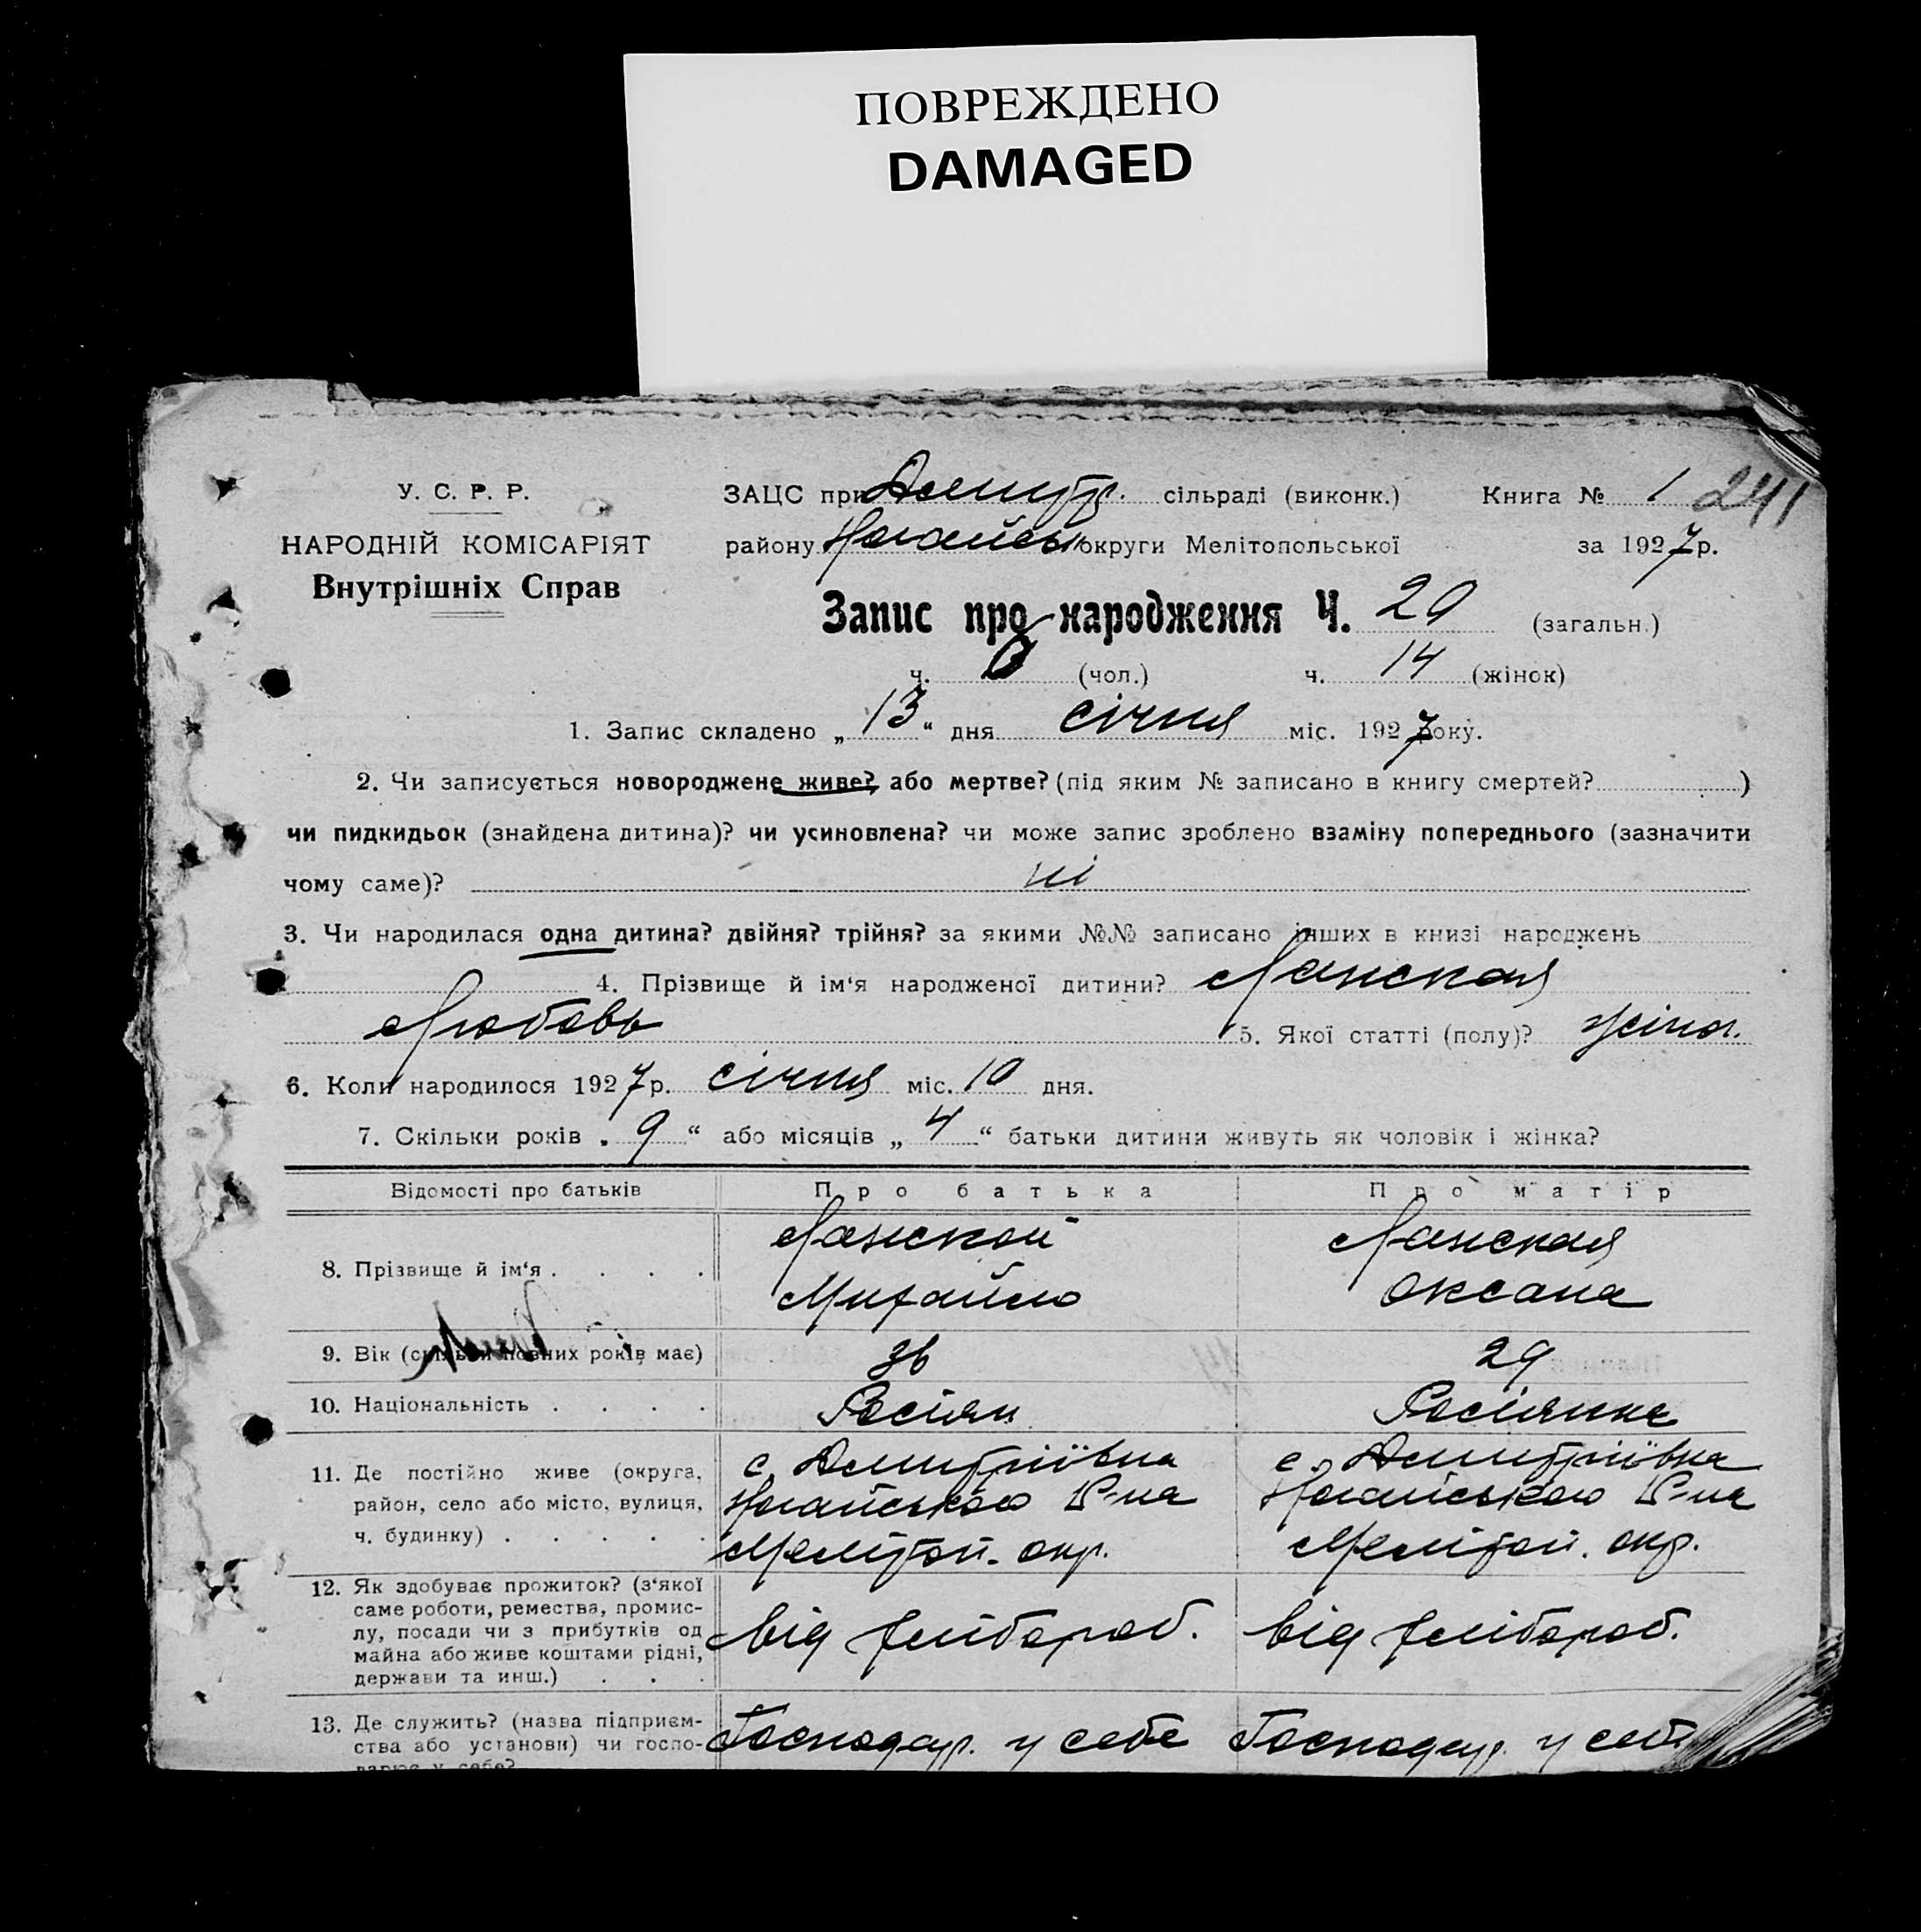 ПОВРЕЖДЕНО
DAMAGED
У. С. Р. Р.
НАРОДНІЙ КОМІСАРІЯТ
Внутрішніх Справ
ЗАЦС при Дмитр. сільраді (виконк.) Книга № 1 241
району Ногайськ округи Мелітопольської за 1927 р.
Запис про народження Ч. 20 (загальн.)
ч. (чол.) ч. 14 (жінок)
1. Запис складено „ 13 “ дня січня міс. 1927 року.
2. Чи записується новороджене живе? або мертве? (під яким № записано в книгу смертей? )
чи пидкидьок (знайдена дитина)? чи усиновлена? чи може запис зроблено взаміну попереднього (зазначити
чому саме)? ні
3. Чи народилася одна дитина? двійня? трійня? за якими №№ записано інших в книзі народжень
4. Прізвище й ім‘я народженої дитини? Ланская
Любовь 5. Якої статті (полу)? жіноч.
6. Коли народилося 1927 р. січня міс. 10 дня.
7. Скільки років „ 9 “ або місяців „ 4 “ батьки дитини живуть як чоловік і жінка?
Відомості про батьків Про батька Про матір
8. Прізвище й ім‘я . . . . Ланской Михайло Ланская Оксана
9. Вік (скільки повних років має) 36 29
10. Національність . . . . Росіян Росіянка
11. Де постійно живе (округа, с. Дмитріївка с. Дмитріївка
район, село або місто, вулиця, Ногайського Р-на Ногайського Р-на
ч. будинку) . . . . . Мелітоп. окр. Мелітоп. окр.
12. Як здобуває прожиток? (з‘якої
саме роботи, ремества, промис-
лу, посади чи з прибутків од від хлібороб. від хлібороб.
майна або живе коштами рідні,
держави та инш.) . . .
13. Де служить? (назва підприєм-
ства або установи) чи госпо- Господар. у себе Господар. у себе
варює у себе?